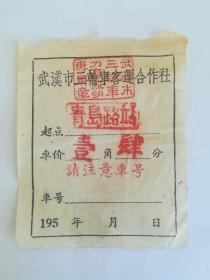 武漢市三輪車客運合作社
青島路站
起点
车价 壹 角 肆 分
請注意車号
车号
195 年 月 日